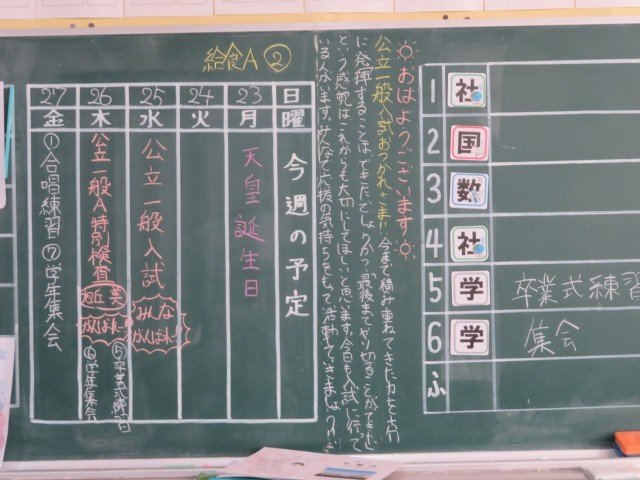 給食A ②
今週の予定
日 23 24 25 26 27
曜 月 火 水 木 金
天皇誕生日
公立一般入試
みんな
がんばれ!
公立一般A特別検査
がんばれ!
⑤卒業式練習
⑥学年集会
①合唱練習 ⑦学年集会
おはようございます
公立一般入試おつかれさま!! 今まで積み重ねてきた力を十分
に発揮することはできたでしょうか?最後までやり切ることができた
という感覚はこれからも大切にしてほしいと思います。今日も入試に行って
いる人がいます。みんなで応援の気持ちをもって活動していきましょう!!
1 社
2 国
3 数
4 社
5 学 卒業式練習
6 学 集会
ふ